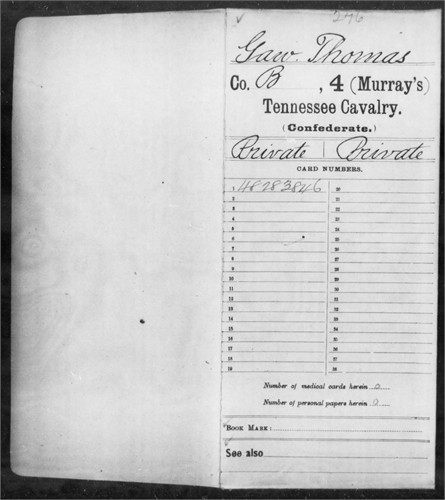 276
Gaw. Thomas
Co. B, 4 (Murray's)
Tennessee Cavalry.
(Confederate.)
Private | Private
CARD NUMBERS.
1 48283846 20
2 21
3 22
4 23
5 24
6 25
7 26
8 27
9 28
10 29
11 30
12 31
13 32
14 33
15 34
16 35
17 36
18 37
19 38
Number of medical cards herein 0
Number of personal papers herein 0
BOOK MARK:
See also